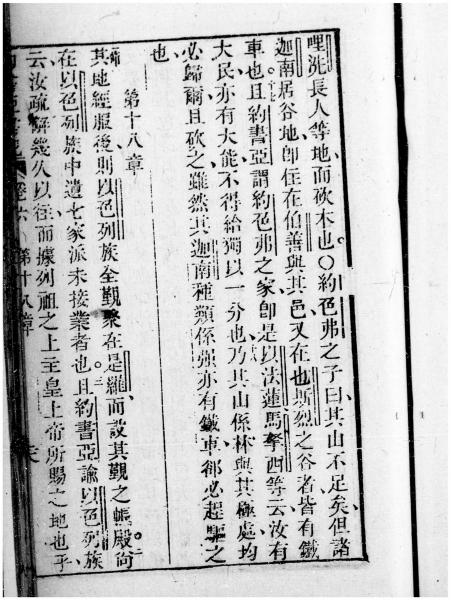 哩洗長人等地而砍木也。〇約色弗之子曰其山不足矣但諸
迦南居谷地卽住在伯善與其邑又在也斯烈之谷者皆有鐵
車也且約書亞謂約色弗之家卽是以法蓮馬拏西等云汝有
大民亦有大能不得給獨以一分也乃其山係林與其極處均
必歸爾且砍之雖然其迦南種類係强亦有鐵車都必趕驅之
也
第十八章
其地經服後則以色列族全覲聚在是羅而設其覲之帳殿尚
在以色列族中遺七家派未接業者也且約書亞諭以色列族
云汝疏解幾久以往而據列祖之上主皇上帝所賜之地也乎
卷六 第十八章